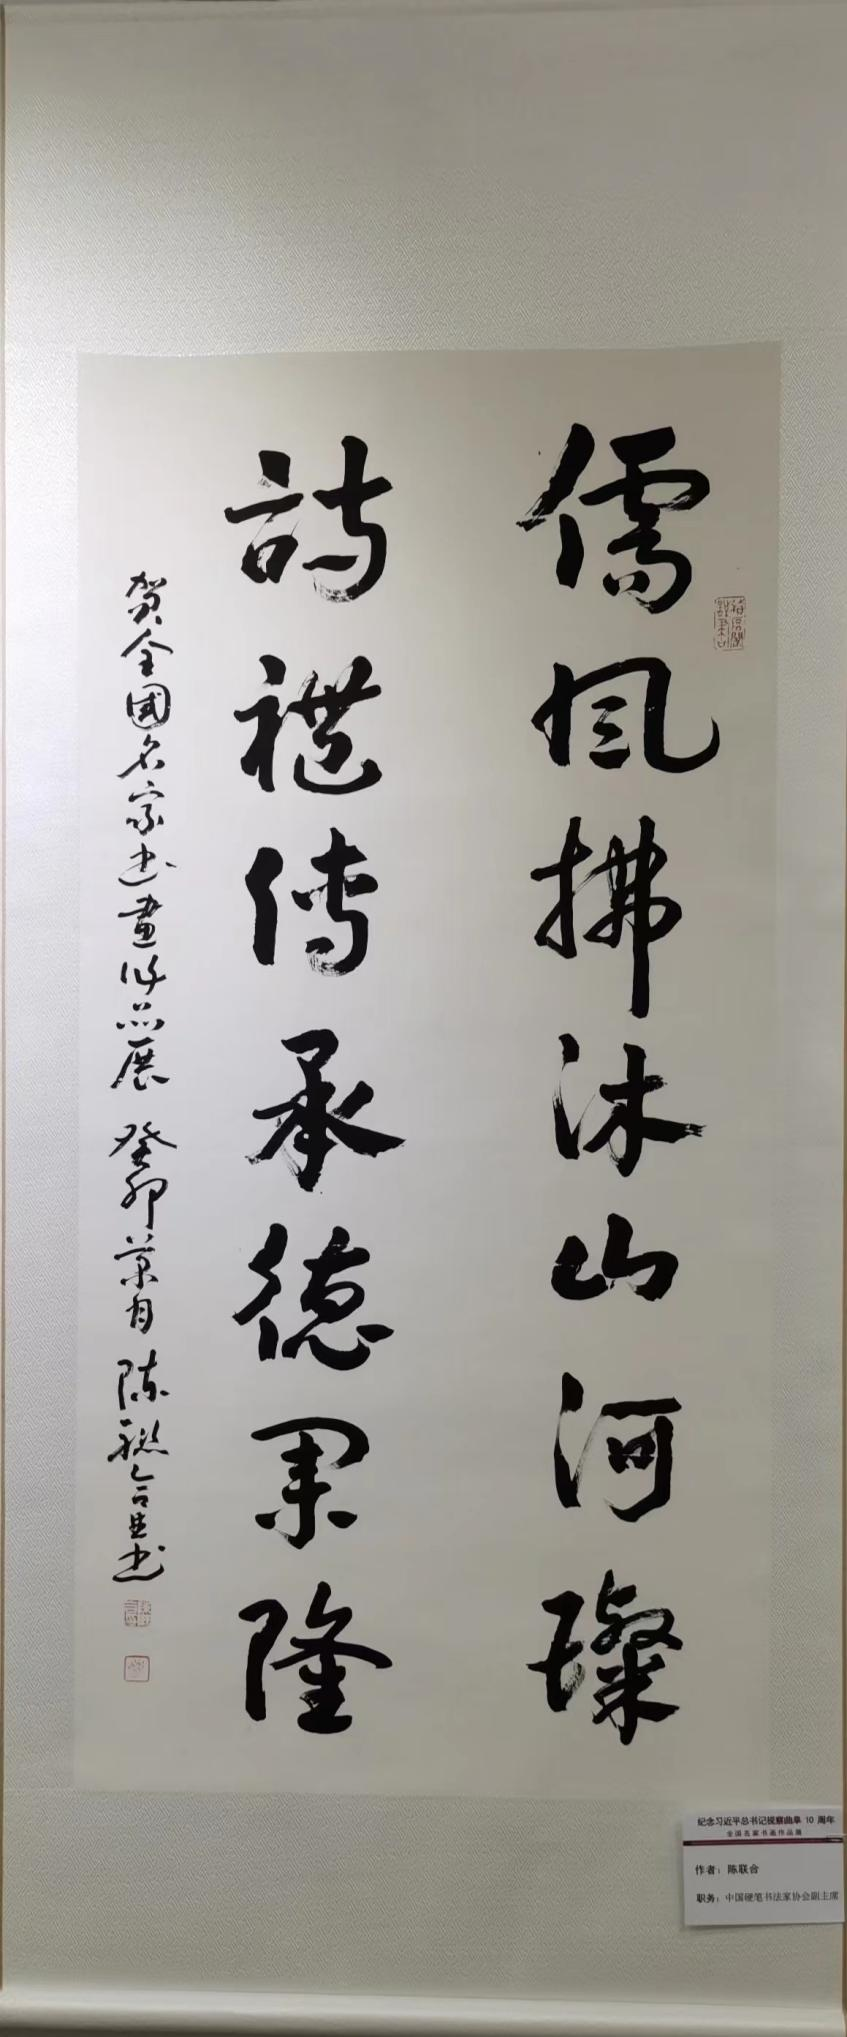 儒风拂沐山河璨
詩禮传承德果隆
贺全国名家书画作品展 癸卯菊月 陈联合书
纪念习近平总书记视察曲阜 10 周年
全国名家书画作品展
作者：陈联合
职务：中国硬笔书法家协会副主席